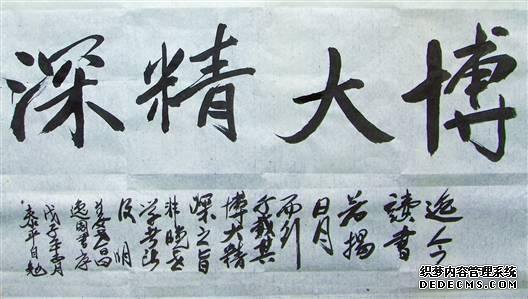 博大精深
迄今
讀書
若揭
日月
而行
千載其
博大精
深之旨
非晚世
學者所
及 明
姜士昌
逸周書序
戊子年
自勉
织梦内容管理系统
DEDECMS.COM